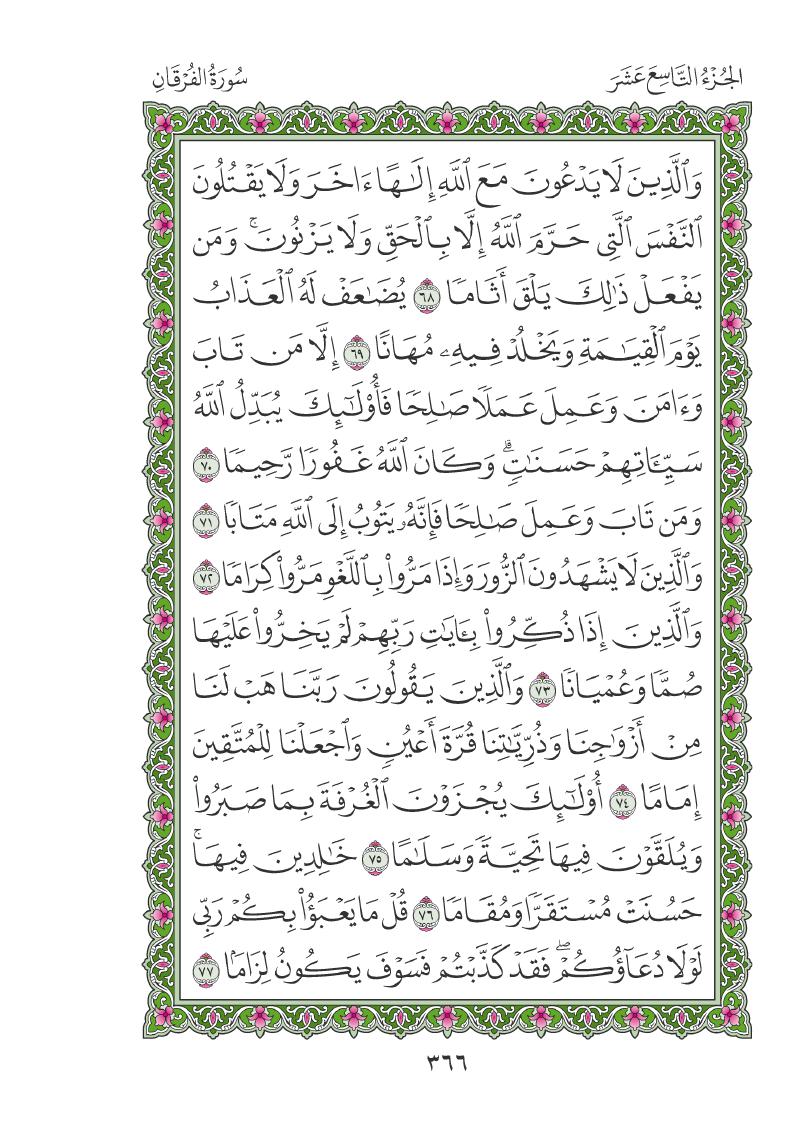 الجُزْءُ التَّاسِعَ عَشَرَ
سُورَةُ الفُرْقَانِ
وَٱلَّذِينَ لَا يَدْعُونَ مَعَ ٱللَّهِ إِلَٰهًا ءَاخَرَ وَلَا يَقْتُلُونَ
ٱلنَّفْسَ ٱلَّتِى حَرَّمَ ٱللَّهُ إِلَّا بِٱلْحَقِّ وَلَا يَزْنُونَ ۚ وَمَن
يَفْعَلْ ذَٰلِكَ يَلْقَ أَثَامًا ٦٨ يُضَٰعَفْ لَهُ ٱلْعَذَابُ
يَوْمَ ٱلْقِيَٰمَةِ وَيَخْلُدْ فِيهِۦ مُهَانًا ٦٩ إِلَّا مَن تَابَ
وَءَامَنَ وَعَمِلَ عَمَلًا صَٰلِحًا فَأُو۟لَٰٓئِكَ يُبَدِّلُ ٱللَّهُ
سَيِّـَٔاتِهِمْ حَسَنَٰتٍ ۗ وَكَانَ ٱللَّهُ غَفُورًا رَّحِيمًا ٧٠
وَمَن تَابَ وَعَمِلَ صَٰلِحًا فَإِنَّهُۥ يَتُوبُ إِلَى ٱللَّهِ مَتَابًا ٧١
وَٱلَّذِينَ لَا يَشْهَدُونَ ٱلزُّورَ وَإِذَا مَرُّوا۟ بِٱللَّغْوِ مَرُّوا۟ كِرَامًا ٧٢
وَٱلَّذِينَ إِذَا ذُكِّرُوا۟ بِـَٔايَٰتِ رَبِّهِمْ لَمْ يَخِرُّوا۟ عَلَيْهَا
صُمًّا وَعُمْيَانًا ٧٣ وَٱلَّذِينَ يَقُولُونَ رَبَّنَا هَبْ لَنَا
مِنْ أَزْوَٰجِنَا وَذُرِّيَّٰتِنَا قُرَّةَ أَعْيُنٍ وَٱجْعَلْنَا لِلْمُتَّقِينَ
إِمَامًا ٧٤ أُو۟لَٰٓئِكَ يُجْزَوْنَ ٱلْغُرْفَةَ بِمَا صَبَرُوا۟
وَيُلَقَّوْنَ فِيهَا تَحِيَّةً وَسَلَٰمًا ٧٥ خَٰلِدِينَ فِيهَا ۚ
حَسُنَتْ مُسْتَقَرًّا وَمُقَامًا ٧٦ قُلْ مَا يَعْبَؤُا۟ بِكُمْ رَبِّى
لَوْلَا دُعَآؤُكُمْ ۖ فَقَدْ كَذَّبْتُمْ فَسَوْفَ يَكُونُ لِزَامًۢا ٧٧
٣٦٦